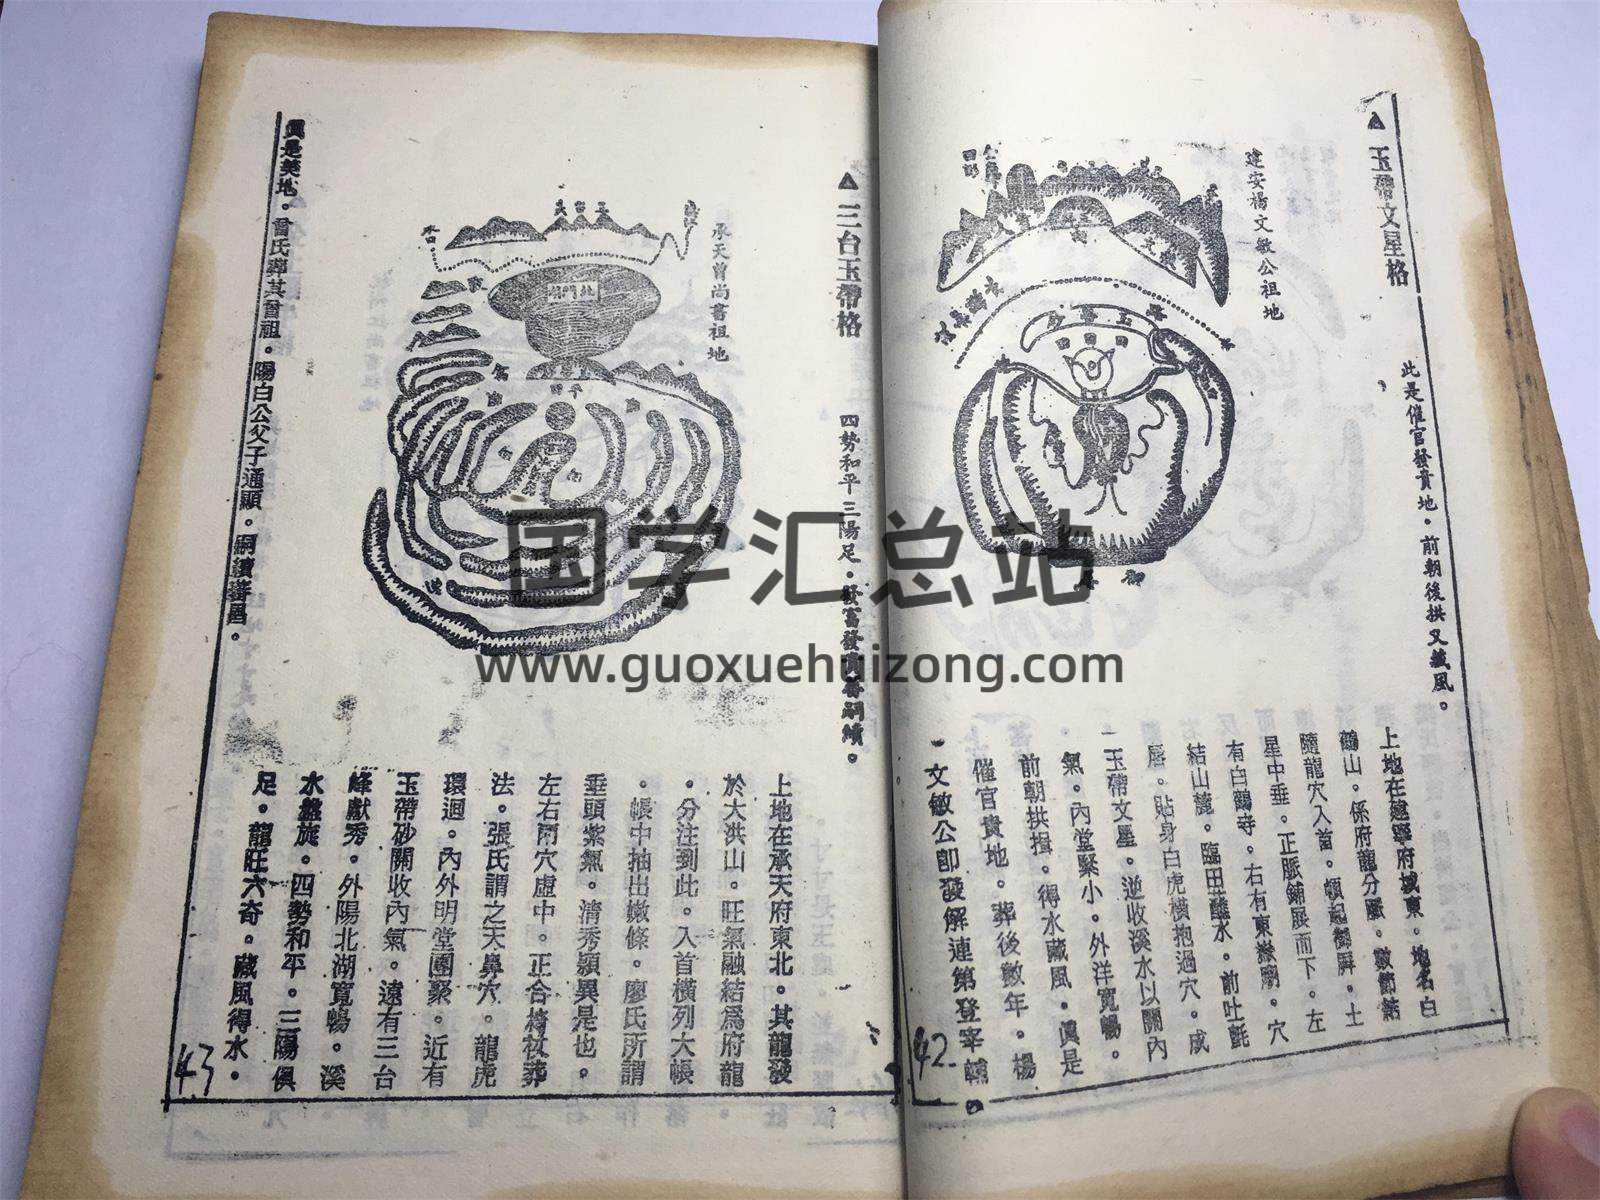 ▲玉帶文星格
此是催官發貴地。前朝後拱又藏風。
建安楊文敏公祖地
上地在建寧府城東。地名白
鶴山。係府龍分脈。數節
隨龍穴入首。頓起御屏。土
星中垂。正脈鋪展而下。左
有白鶴寺。右有東嶽廟。穴
結山麓。臨田蘸水。前吐氈
唇。貼身白虎橫抱過穴。成
玉帶文星。逆收溪水以關內
氣。內堂緊小。外洋寬暢。
前朝拱揖。得水藏風。眞是
催官貴地。葬後數年。楊
文敏公卽發解連第登宰輔。
42
▲三台玉帶格
四勢和平三陽足。發富發貴壽嗣續。
承天曾尚書祖地
北門湖
水口
上地在承天府東北。其龍發
於大洪山。旺氣融結爲府龍
。分注到此。入首橫列大帳
。帳中抽出嫩條。廖氏所謂
垂頭紫氣。清秀穎異是也。
左右兩穴虛中。正合椅杖葬
法。張氏謂之天鼻穴。龍虎
環迴。內外明堂團聚。近有
玉帶砂關收內氣。遠有三台
峰獻秀。外陽北湖寬暢。溪
水盤旋。四勢和平。三陽俱
足。龍旺六奇。藏風得水。
眞是美地。曾氏葬其曾祖。陽白公父子通顯。嗣續蕃昌。
43
国学汇总站
www.guoxuehuizong.com